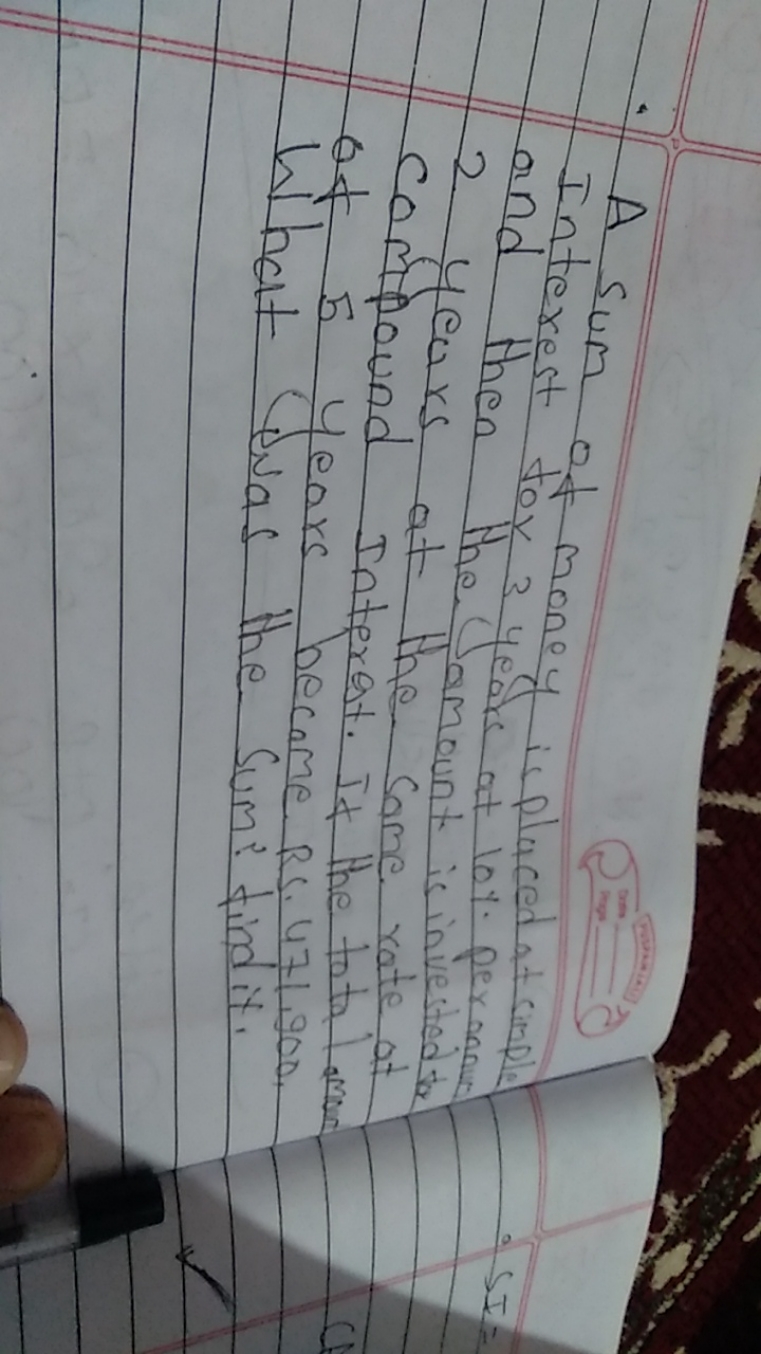 PUSPANJALI
Date
Page
A sum of money is placed at simple
Interest for 3 years at 10%. per annum
and then the amount is invested for
2 years at the same rate of
compound Interest. If the total amoun
of 5 years became Rs. 471,900,
What was the sum? find it.
SI =